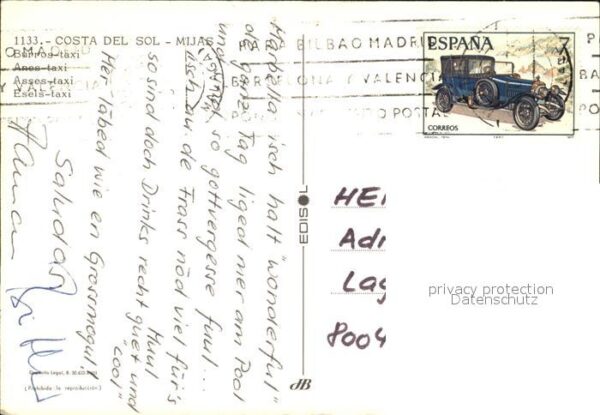 1133.- COSTA DEL SOL - MIJAS
Burros-taxi
Anes-taxi
Asses-taxi
Eseis-taxi
BILBAO MADRI
BARCELONA Y VALENCIA
POSTAL
ESPAÑA
7
CORREOS
Marbella isch halt "wonderful"
die ganze Tag liged mer am Pool
und so gottvergesse fuul...
isch au de Frass nöd viel für's
Huul
so sind doch Drinks recht guet und
"cool"
Her läbed wie en Grossmogul!
Saludos
HE
Adr
Lag
8004
EDISOL
privacy protection
Datenschutz
Depósito Legal, B.
(Prohibida la reproducción)